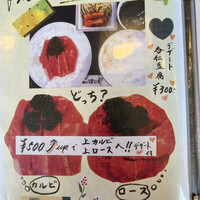 デザート
杏仁豆腐
¥300-
どっち?
¥500 upで 上カルビ
上ロースへ!!
デザート付
カルビ
ロース